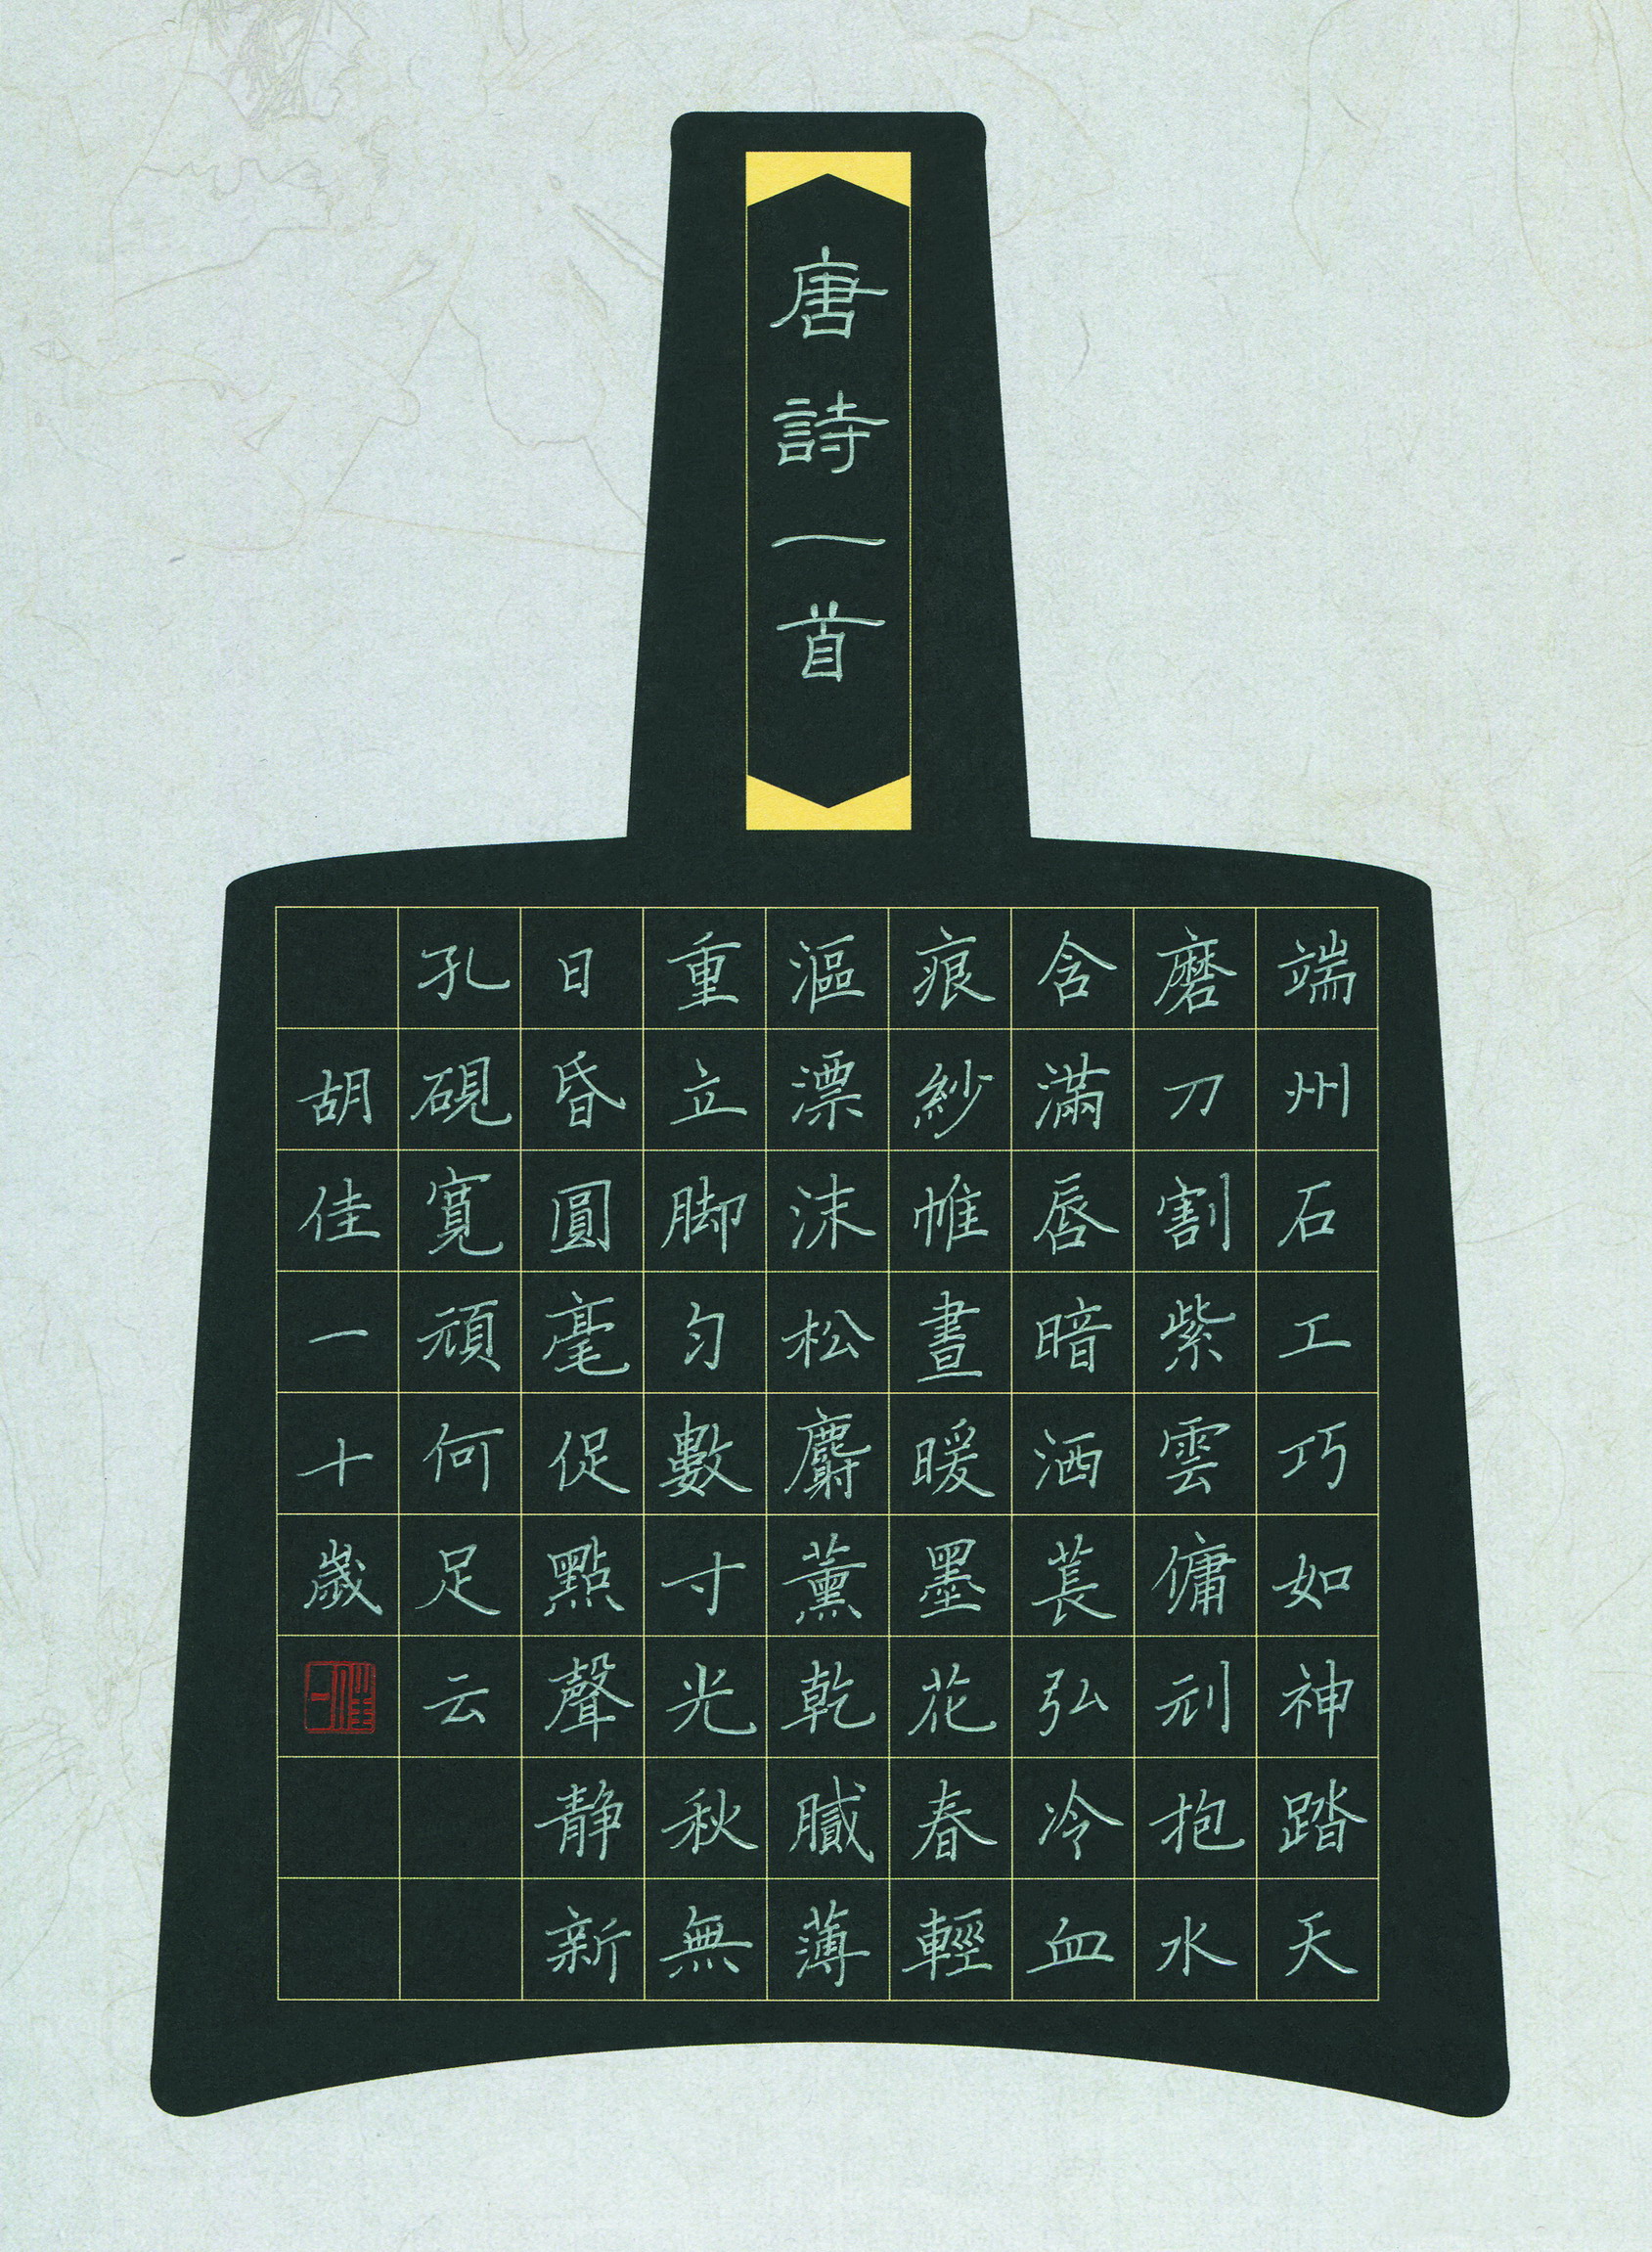 唐詩一首
端州石工巧如神踏天
磨刀割紫雲傭刓抱水
含滿唇暗洒萇弘冷血
痕紗帷晝暖墨花春輕
漚漂沫松麝薰乾膩薄
重立脚匀數寸光秋無
日昏圓毫促點聲静新
孔硯寬頑何足云
胡佳一十歲
佳一